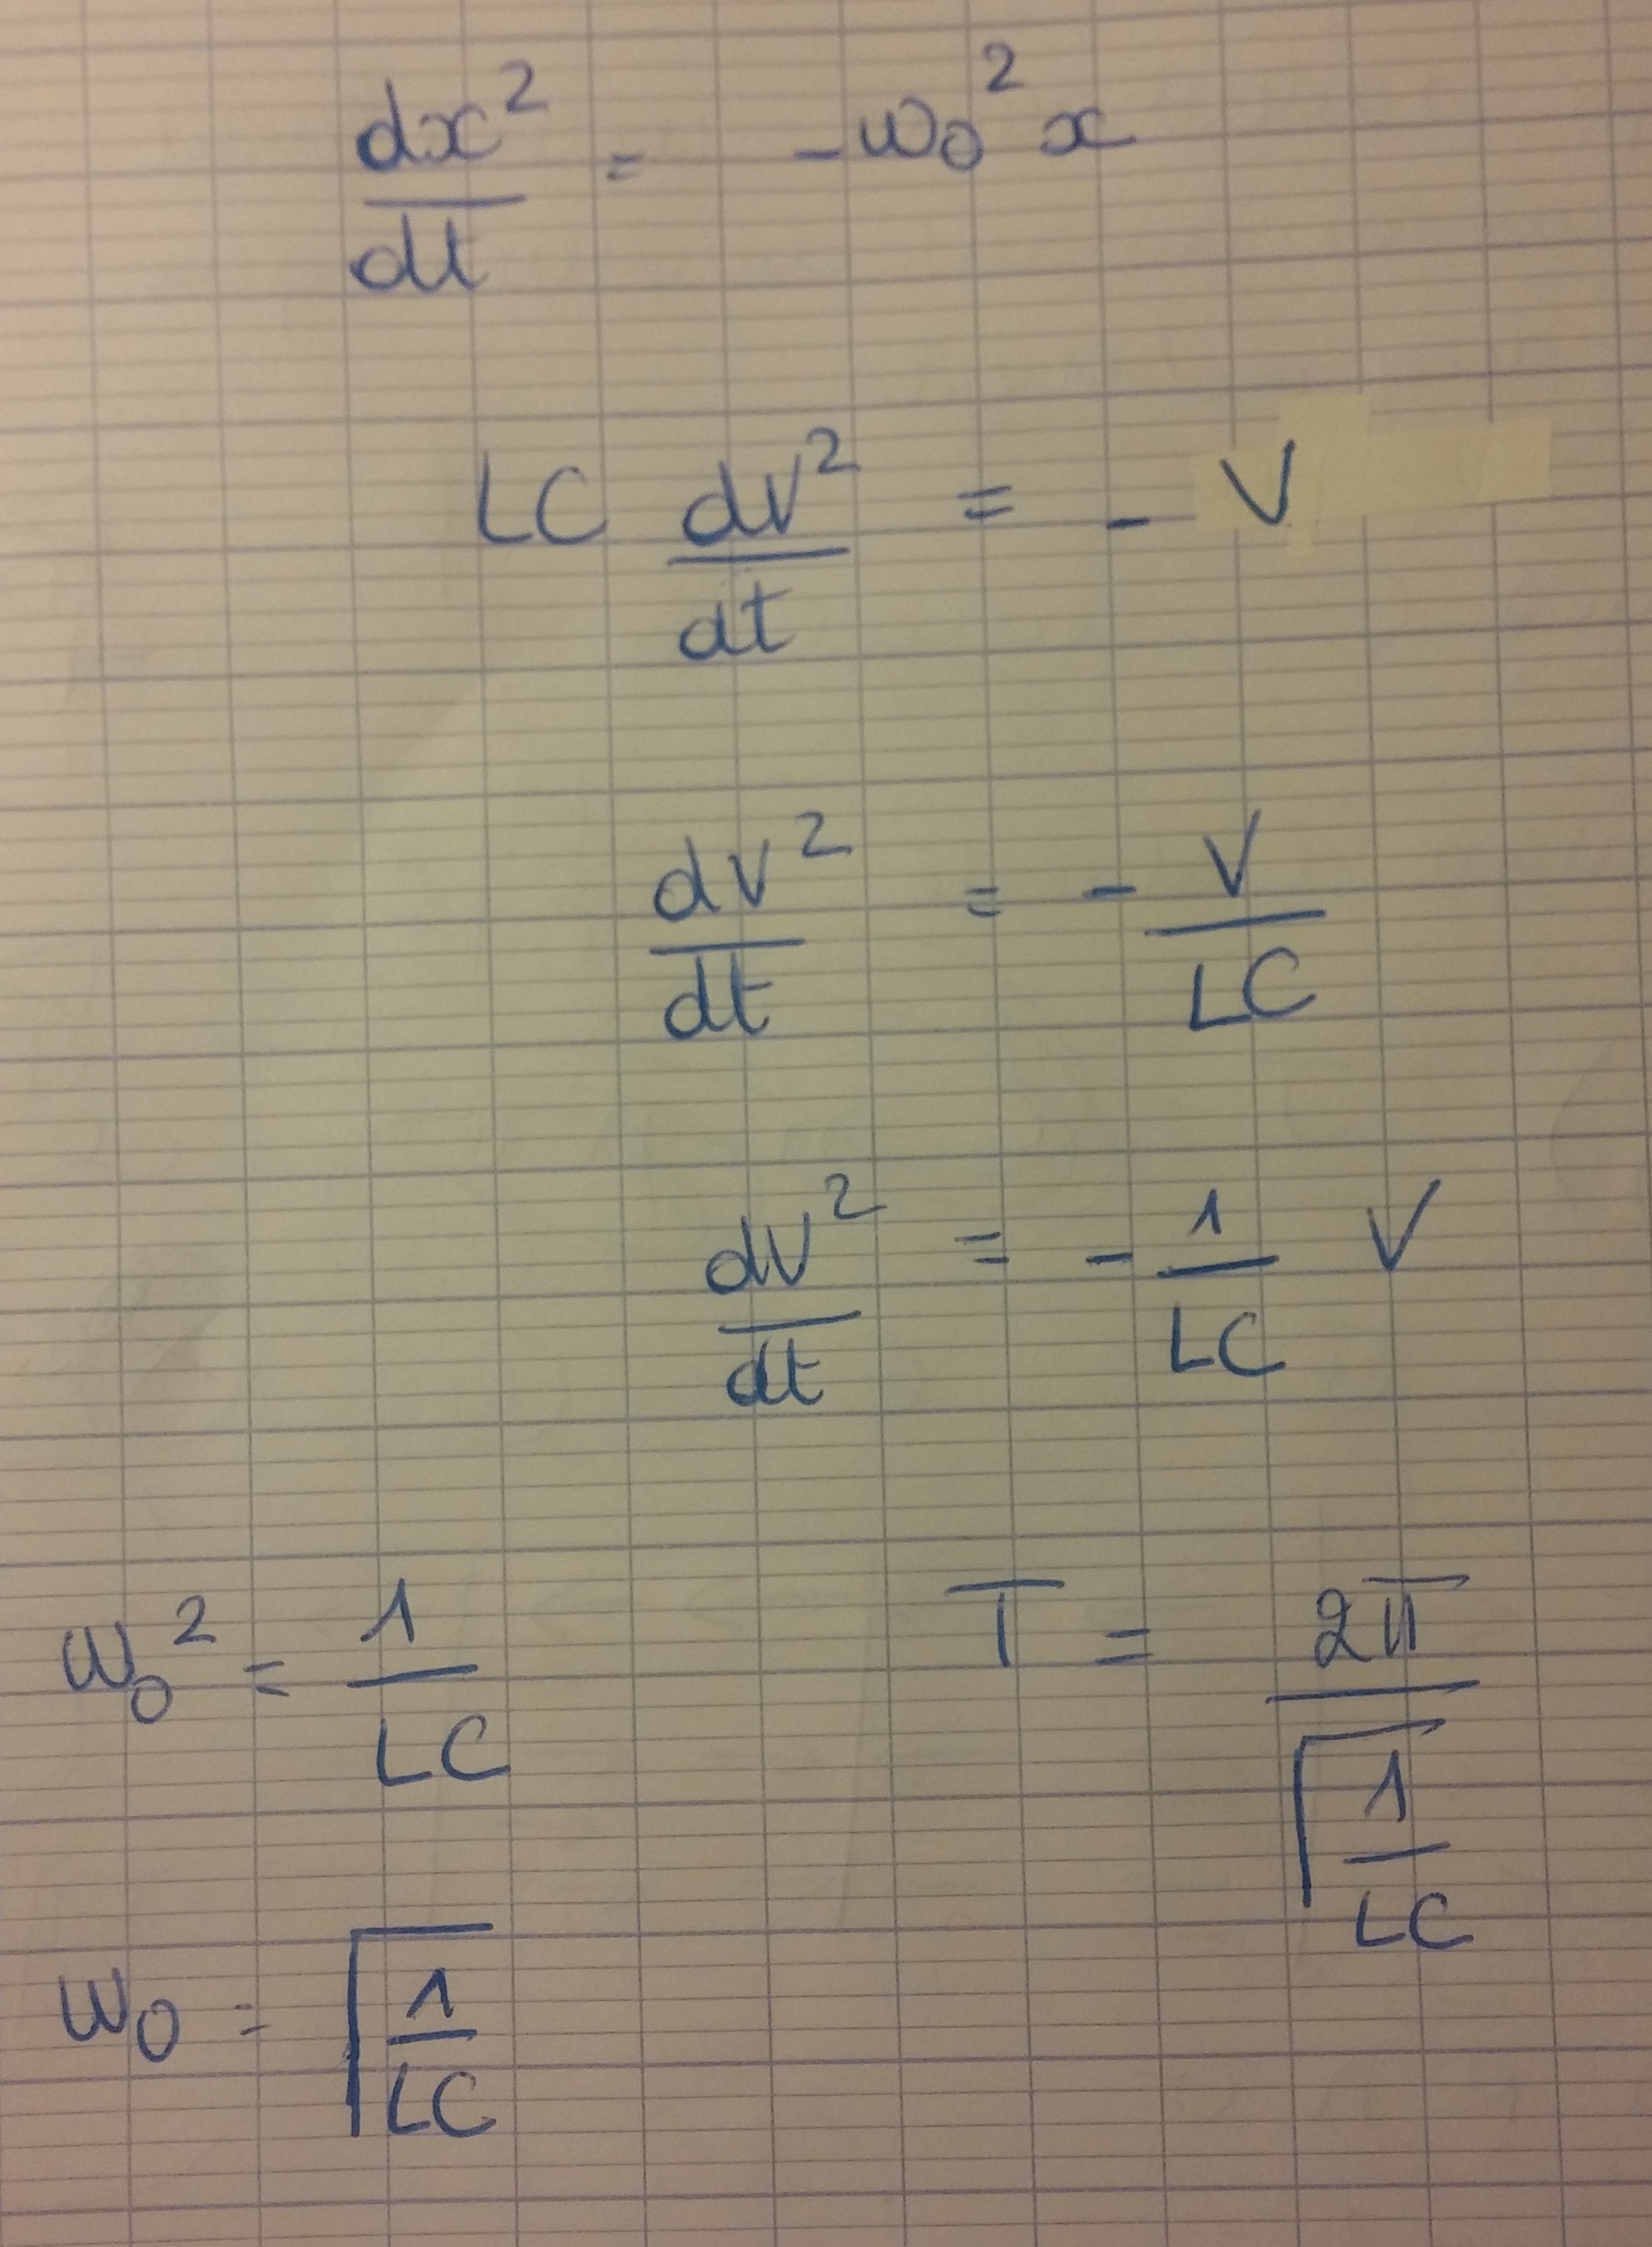 dx²/dt = -ω₀² x
LC dV²/dt = - V
dV²/dt = - V/LC
dV²/dt = - 1/LC V
ω₀² = 1/LC
T = 2π/√(1/LC)
ω₀ = √(1/LC)